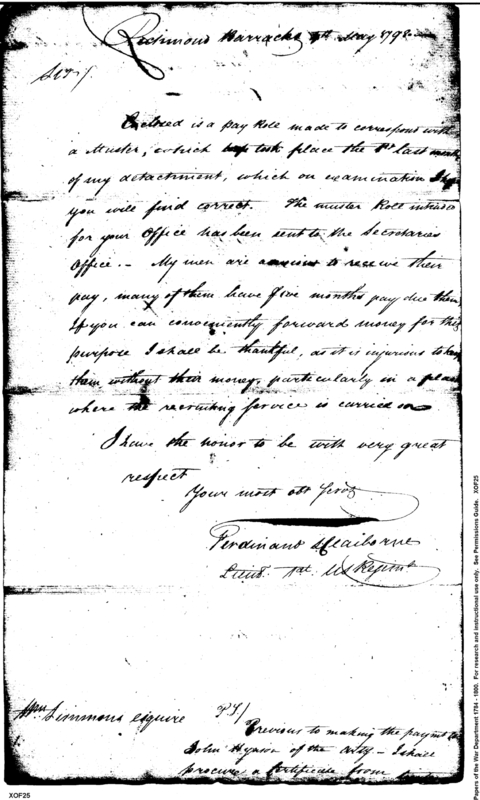 Richmond Barracks 4th May 1798
Sir /
Enclosed is a pay Role made to correspond with
a Muster, which took place the 1st last month
of my detachment, which on examination I hope
you will find correct. The muster Role intended
for your Office has been sent to the Secretaries
Office. - My men are anxious to receive their
pay, many of them have five months pay due them
If you can conveniently forward money for this
purpose I shall be thankful, as it is injurious to keep
them without their money, particularly in a place
where the recruiting Service is carried on
I have the honor to be with very great
respect
Your most obt Servt
Ferdinand L Claiborne
Lieut. 1st US Regimt
Wm Simmons esquire
PS /
Previous to making the paymt to
John Hynson of the Arty - I shall
procure a Certificate from
XOF25
Papers of the War Department 1784-1800. For research and instructional use only. See Permissions Guide. XOF25